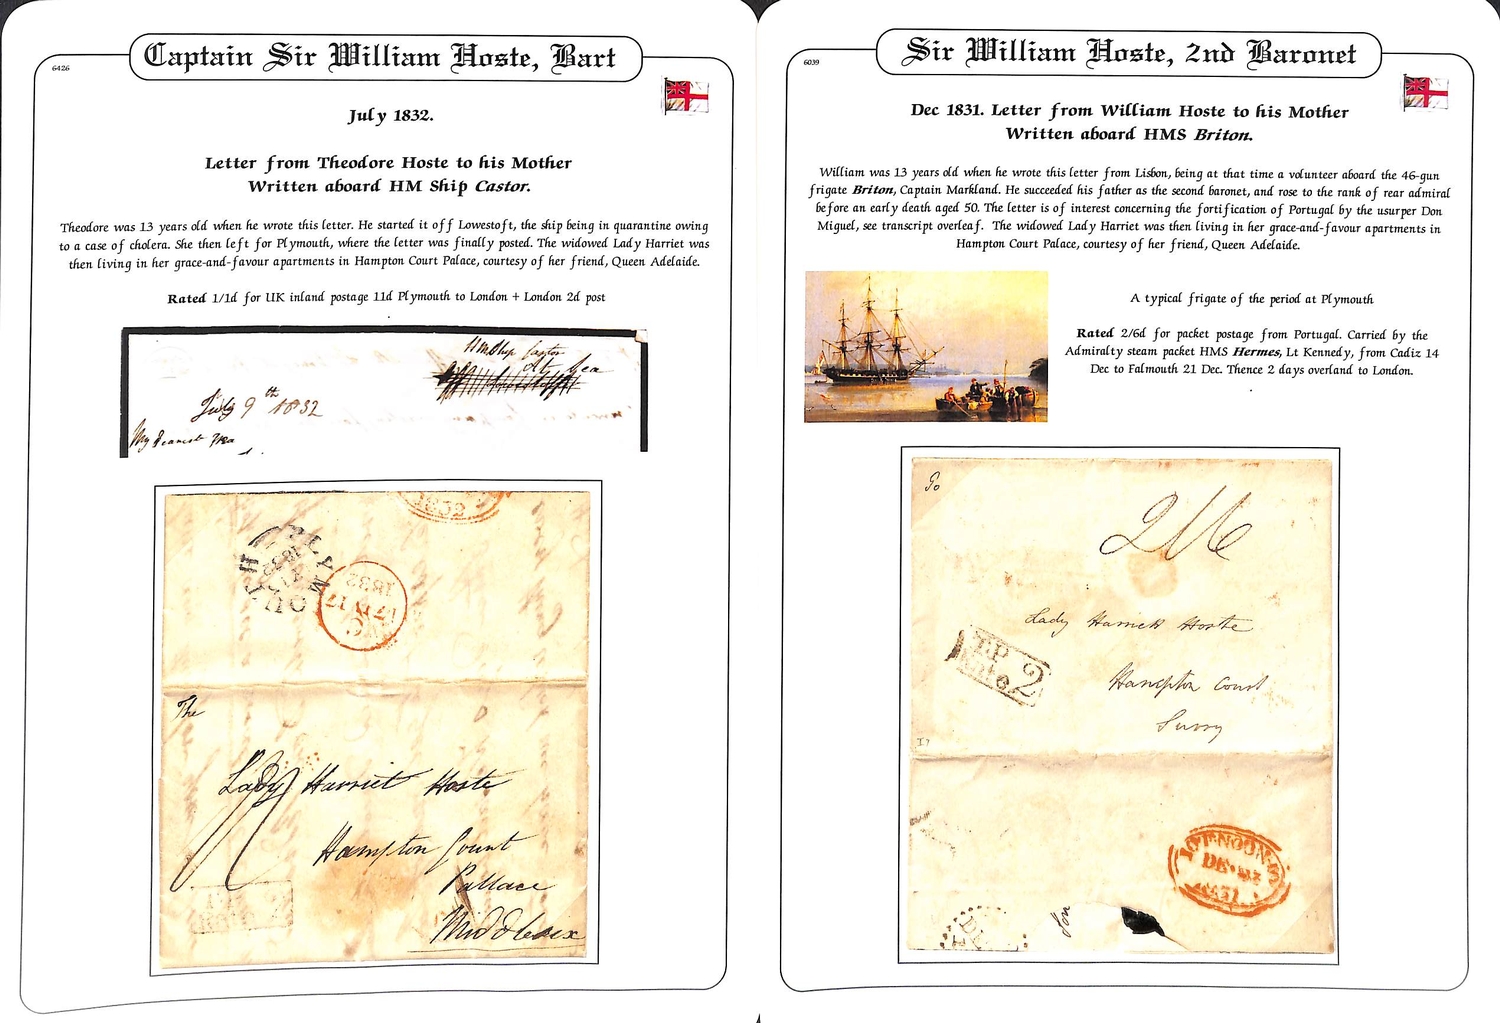 6426
Captain Sir William Hoste, Bart
July 1832.
Letter from Theodore Hoste to his Mother
Written aboard HM Ship Castor.
Theodore was 13 years old when he wrote this letter. He started it off Lowestoft, the ship being in quarantine owing
to a case of cholera. She then left for Plymouth, where the letter was finally posted. The widowed Lady Harriet was
then living in her grace-and-favour apartments in Hampton Court Palace, courtesy of her friend, Queen Adelaide.
Rated 1/1d for UK inland postage 11d Plymouth to London + London 2d post
HM Ship Castor
At Sea
July 9th 1832
My Dearest Ma
1832
PLYMOUTH
1832
17 JY 17
1832
The
Lady Harriet Hoste
Hampton Court
Pallace
Middlesex
6039
Sir William Hoste, 2nd Baronet
Dec 1831. Letter from William Hoste to his Mother
Written aboard HMS Briton.
William was 13 years old when he wrote this letter from Lisbon, being at that time a volunteer aboard the 46-gun
frigate Briton, Captain Markland. He succeeded his father as the second baronet, and rose to the rank of rear admiral
before an early death aged 50. The letter is of interest concerning the fortification of Portugal by the usurper Don
Miguel, see transcript overleaf. The widowed Lady Harriet was then living in her grace-and-favour apartments in
Hampton Court Palace, courtesy of her friend, Queen Adelaide.
A typical frigate of the period at Plymouth
Rated 2/6d for packet postage from Portugal. Carried by the
Admiralty steam packet HMS Hermes, Lt Kennedy, from Cadiz 14
Dec to Falmouth 21 Dec. Thence 2 days overland to London.
2/6
Lady Harriett Hoste
T.P
Rate 2
Hampton Court
Surry
NOON
1831